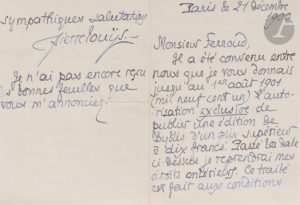 Paris le 21 décembre
1900
Monsieur Ferroud,
Il a été convenu entre
nous que je vous donnais
jusqu'au 1er août 1901
(mil neuf cent un) l'auto-
risation exclusive de
publier une édition de
Bilitis d'un prix supérieur
à dix francs. Passé la date
ci-dessus je reprendrai mes
droits antérieurs. Ce traité
est fait aux conditions
sympathiques salutations
Pierre Louÿs
Je n'ai pas encore reçu
les bonnes feuilles que
vous m'annoncez.